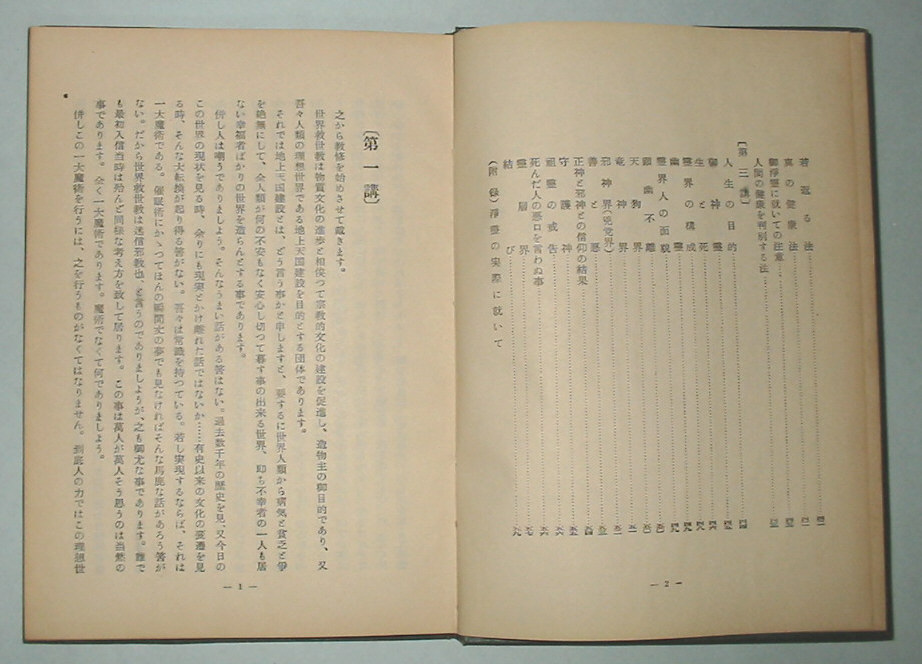 若返る法
真の健康法
御浄霊に就いての注意
人間の健康を判別する法
〔第三講〕
人生の目的
御神霊
生と死
霊界の構成
幽霊
霊界人の面貌
顕幽不離
天狗界
竜神界
邪神界(兇党界)
善と悪
正神と邪神との信仰の結果
守護神
祖霊の戒告
死んだ人の悪口を言わぬ事
霊層界
結び
(附録)淨霊の実際に就いて
— 2 —
〔第一講〕
之から教修を始めさせて戴きます。
世界救世教は物質文化の進歩と相俟つて宗教的文化の建設を促進し、造物主の御目的であり、又
吾々人類の理想世界である地上天国建設を目的とする団体であります。
それでは地上天国建設とは、どう言う事かと申しますと、要するに世界人類から病気と貧乏と爭
を絶無にして、全人類が何の不安もなく安心し切つて暮す事の出来る世界、即ち不幸者の一人も居
ない幸福者ばかりの世界を造らんとする事であります。
併し人は嘲うでありましよう。そんなうまい話がある筈はない。過去数千年の歴史を見、又今日の
この世界の現状を見る時、余りにも現実とかけ離れた話ではないか……有史以来の文化の変遷を見
る時、そんな大転換が起り得る筈がない。吾々は常識を持つている。若し実現するならば、それは
一大魔術である。催眠術にかゝつてほんの瞬間丈の夢でも見なければそんな馬鹿な話があろう筈が
ない。だから世界救世教は迷信邪教也、と言うのでありましようが、之も御尤な事であります。誰で
も最初入信当時は殆んど同様な考え方を致して居ります。この事は萬人が萬人そう思うのは当然の
事であります。全く一大魔術であります。魔術でなくて何でありましよう。
併しこの一大魔術を行うには、之を行うものがなくてはなりません。到底人の力ではこの理想世
— 1 —